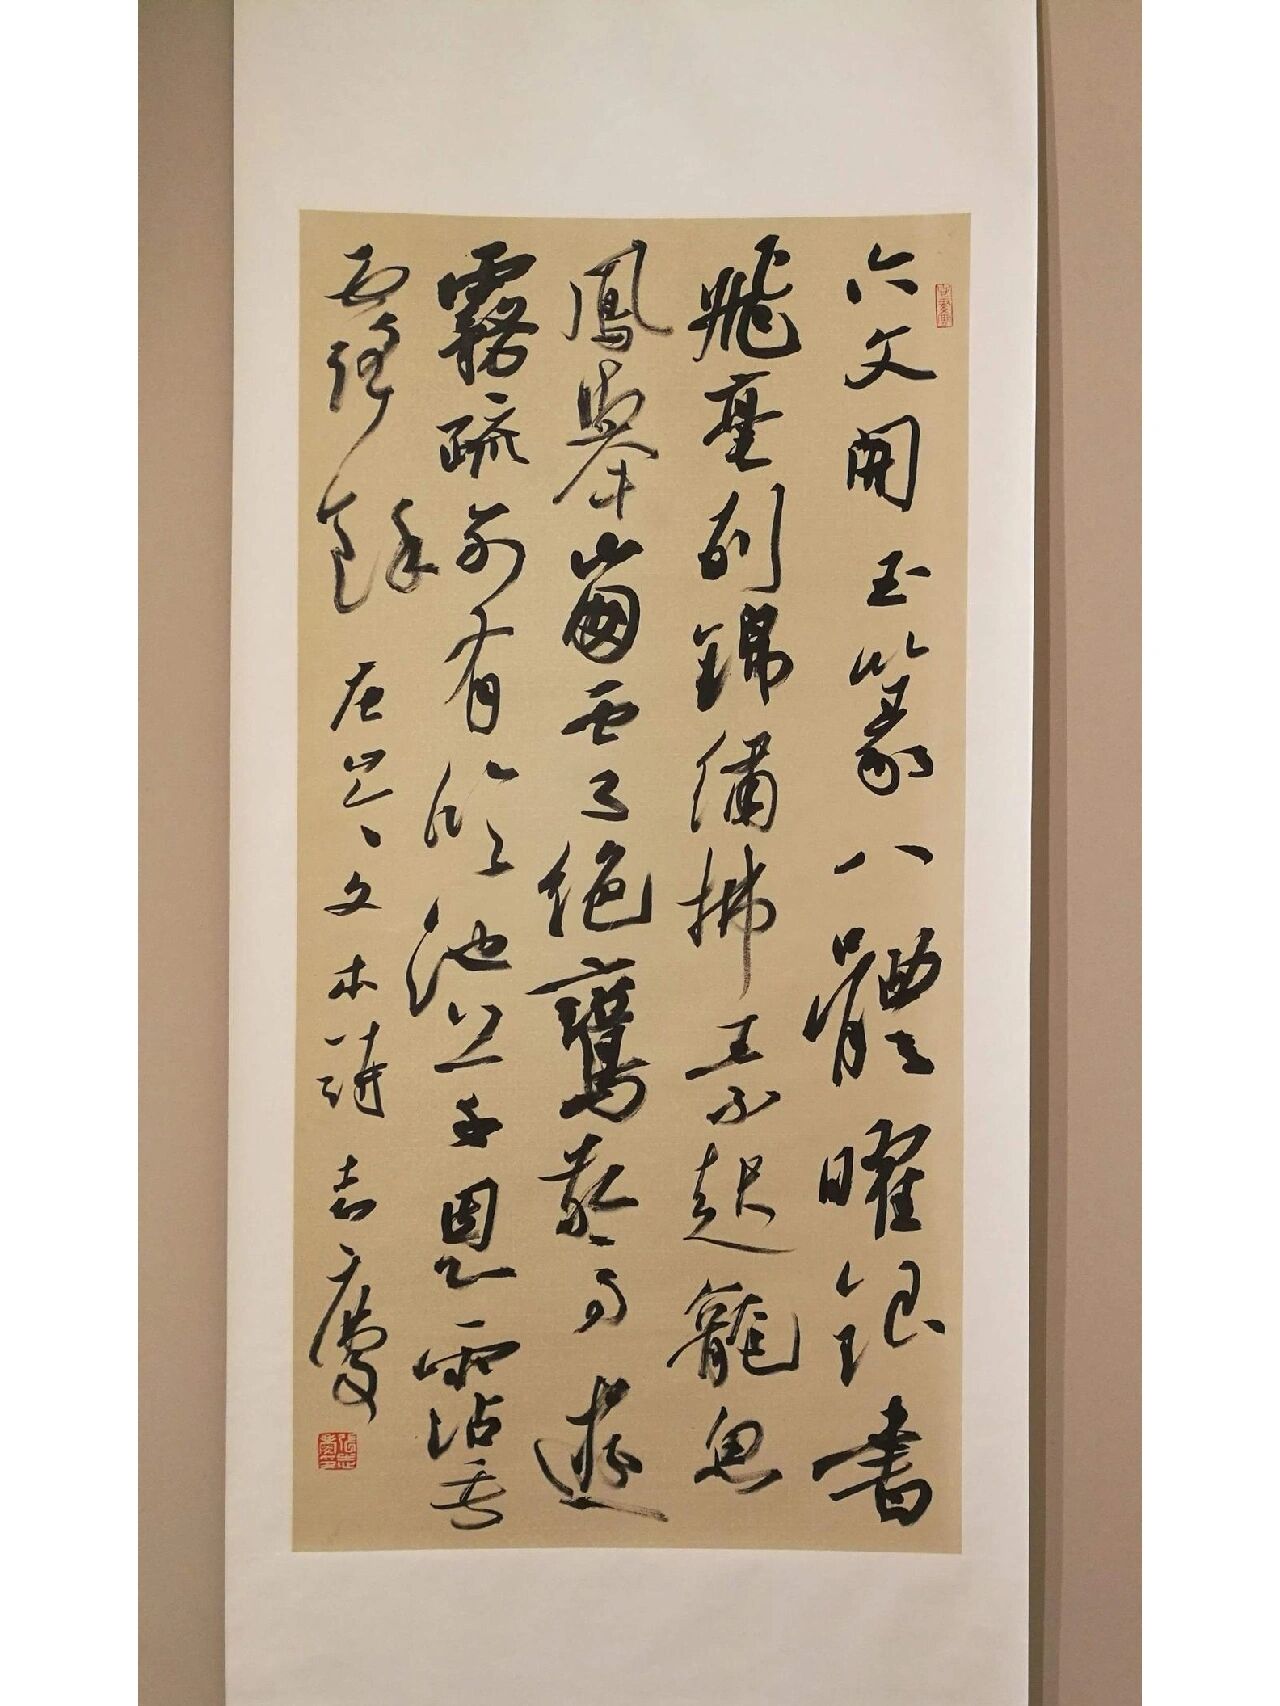 六文開玉篆八體曜銀書
飛毫列錦繡拂素起龍魚
鳳舉崩雲絕鸞驚遊
霧疏別有臨池草恩霑垂
露餘 唐岑文本詩 志慶